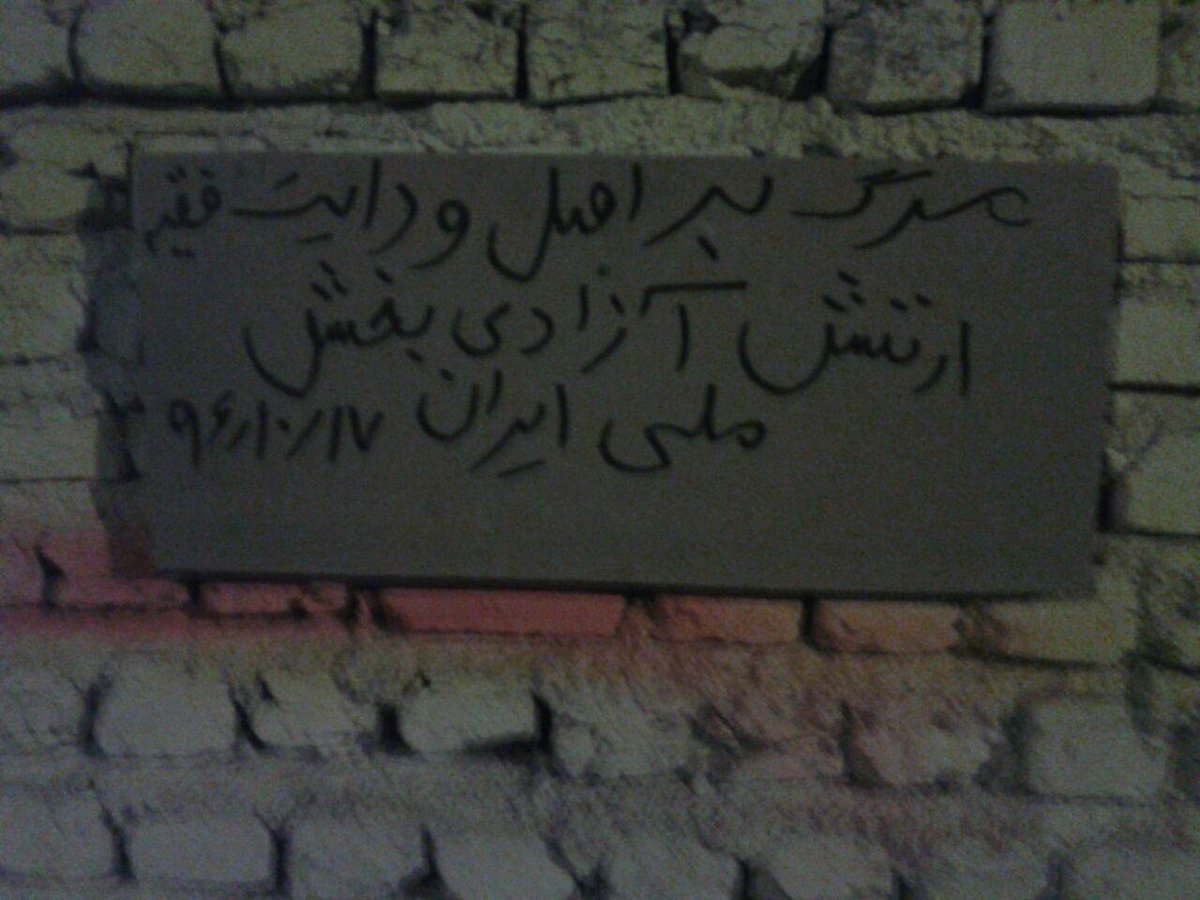 مرگ بر اصل ولایت فقیه
ارتش آزادی بخش
ملی ایران ۹۶/۱۰/۱۷